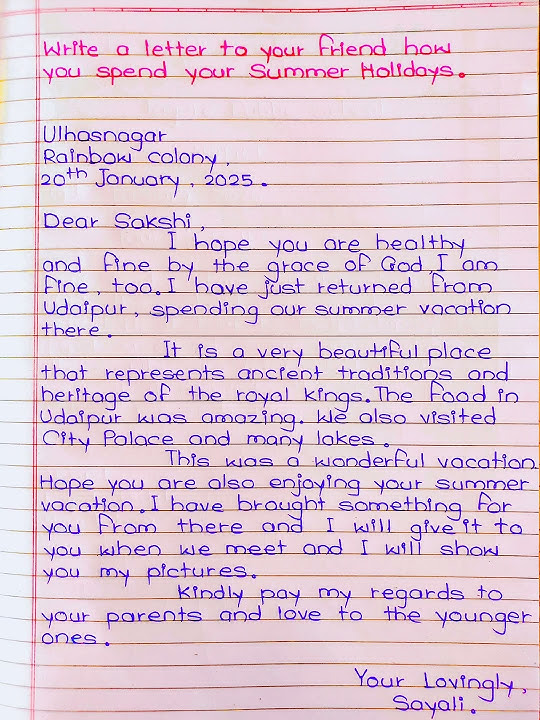 Write a letter to your friend how
you spend your Summer Holidays.
Ulhasnagar
Rainbow colony,
20th January, 2025.
Dear Sakshi,
I hope you are healthy
and fine by the grace of God. I am
fine, too. I have just returned from
Udaipur, spending our summer vacation
there.
It is a very beautiful place
that represents ancient traditions and
heritage of the royal kings. The food in
Udaipur was amazing. We also visited
City Palace and many lakes.
This was a wonderful vacation
Hope you are also enjoying your summer
vacation. I have brought something for
you from there and I will give it to
you when we meet and I will show
you my pictures.
Kindly pay my regards to
your parents and love to the younger
ones.
Your Lovingly,
Sayali.